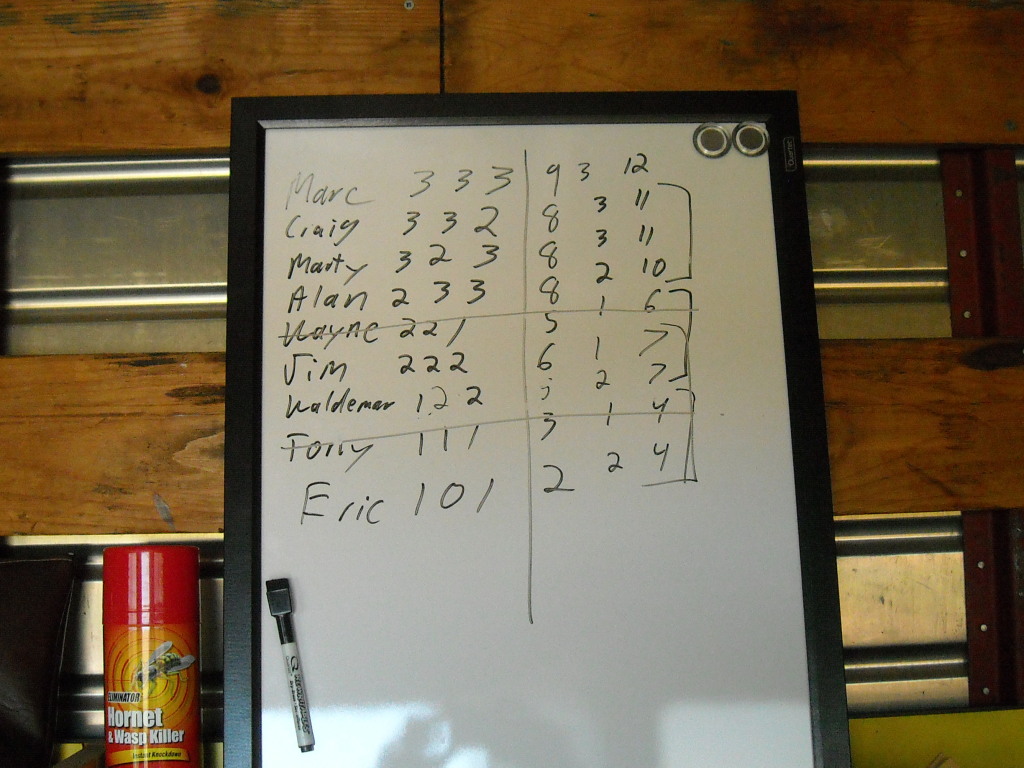 Marc 3 3 3 9 3 12
Craig 3 3 2 8 3 11
Marty 3 2 3 8 3 11
Alan 2 3 3 8 2 10
Wayne 2 2 1 5 1 6
Jim 2 2 2 6 1 7
Waldemar 1 2 2 5 2 7
Torry 1 1 1 3 1 4
Eric 1 0 1 2 2 4
Quartet
ELIMINATOR
Hornet
& Wasp Killer
Instant Knockdown